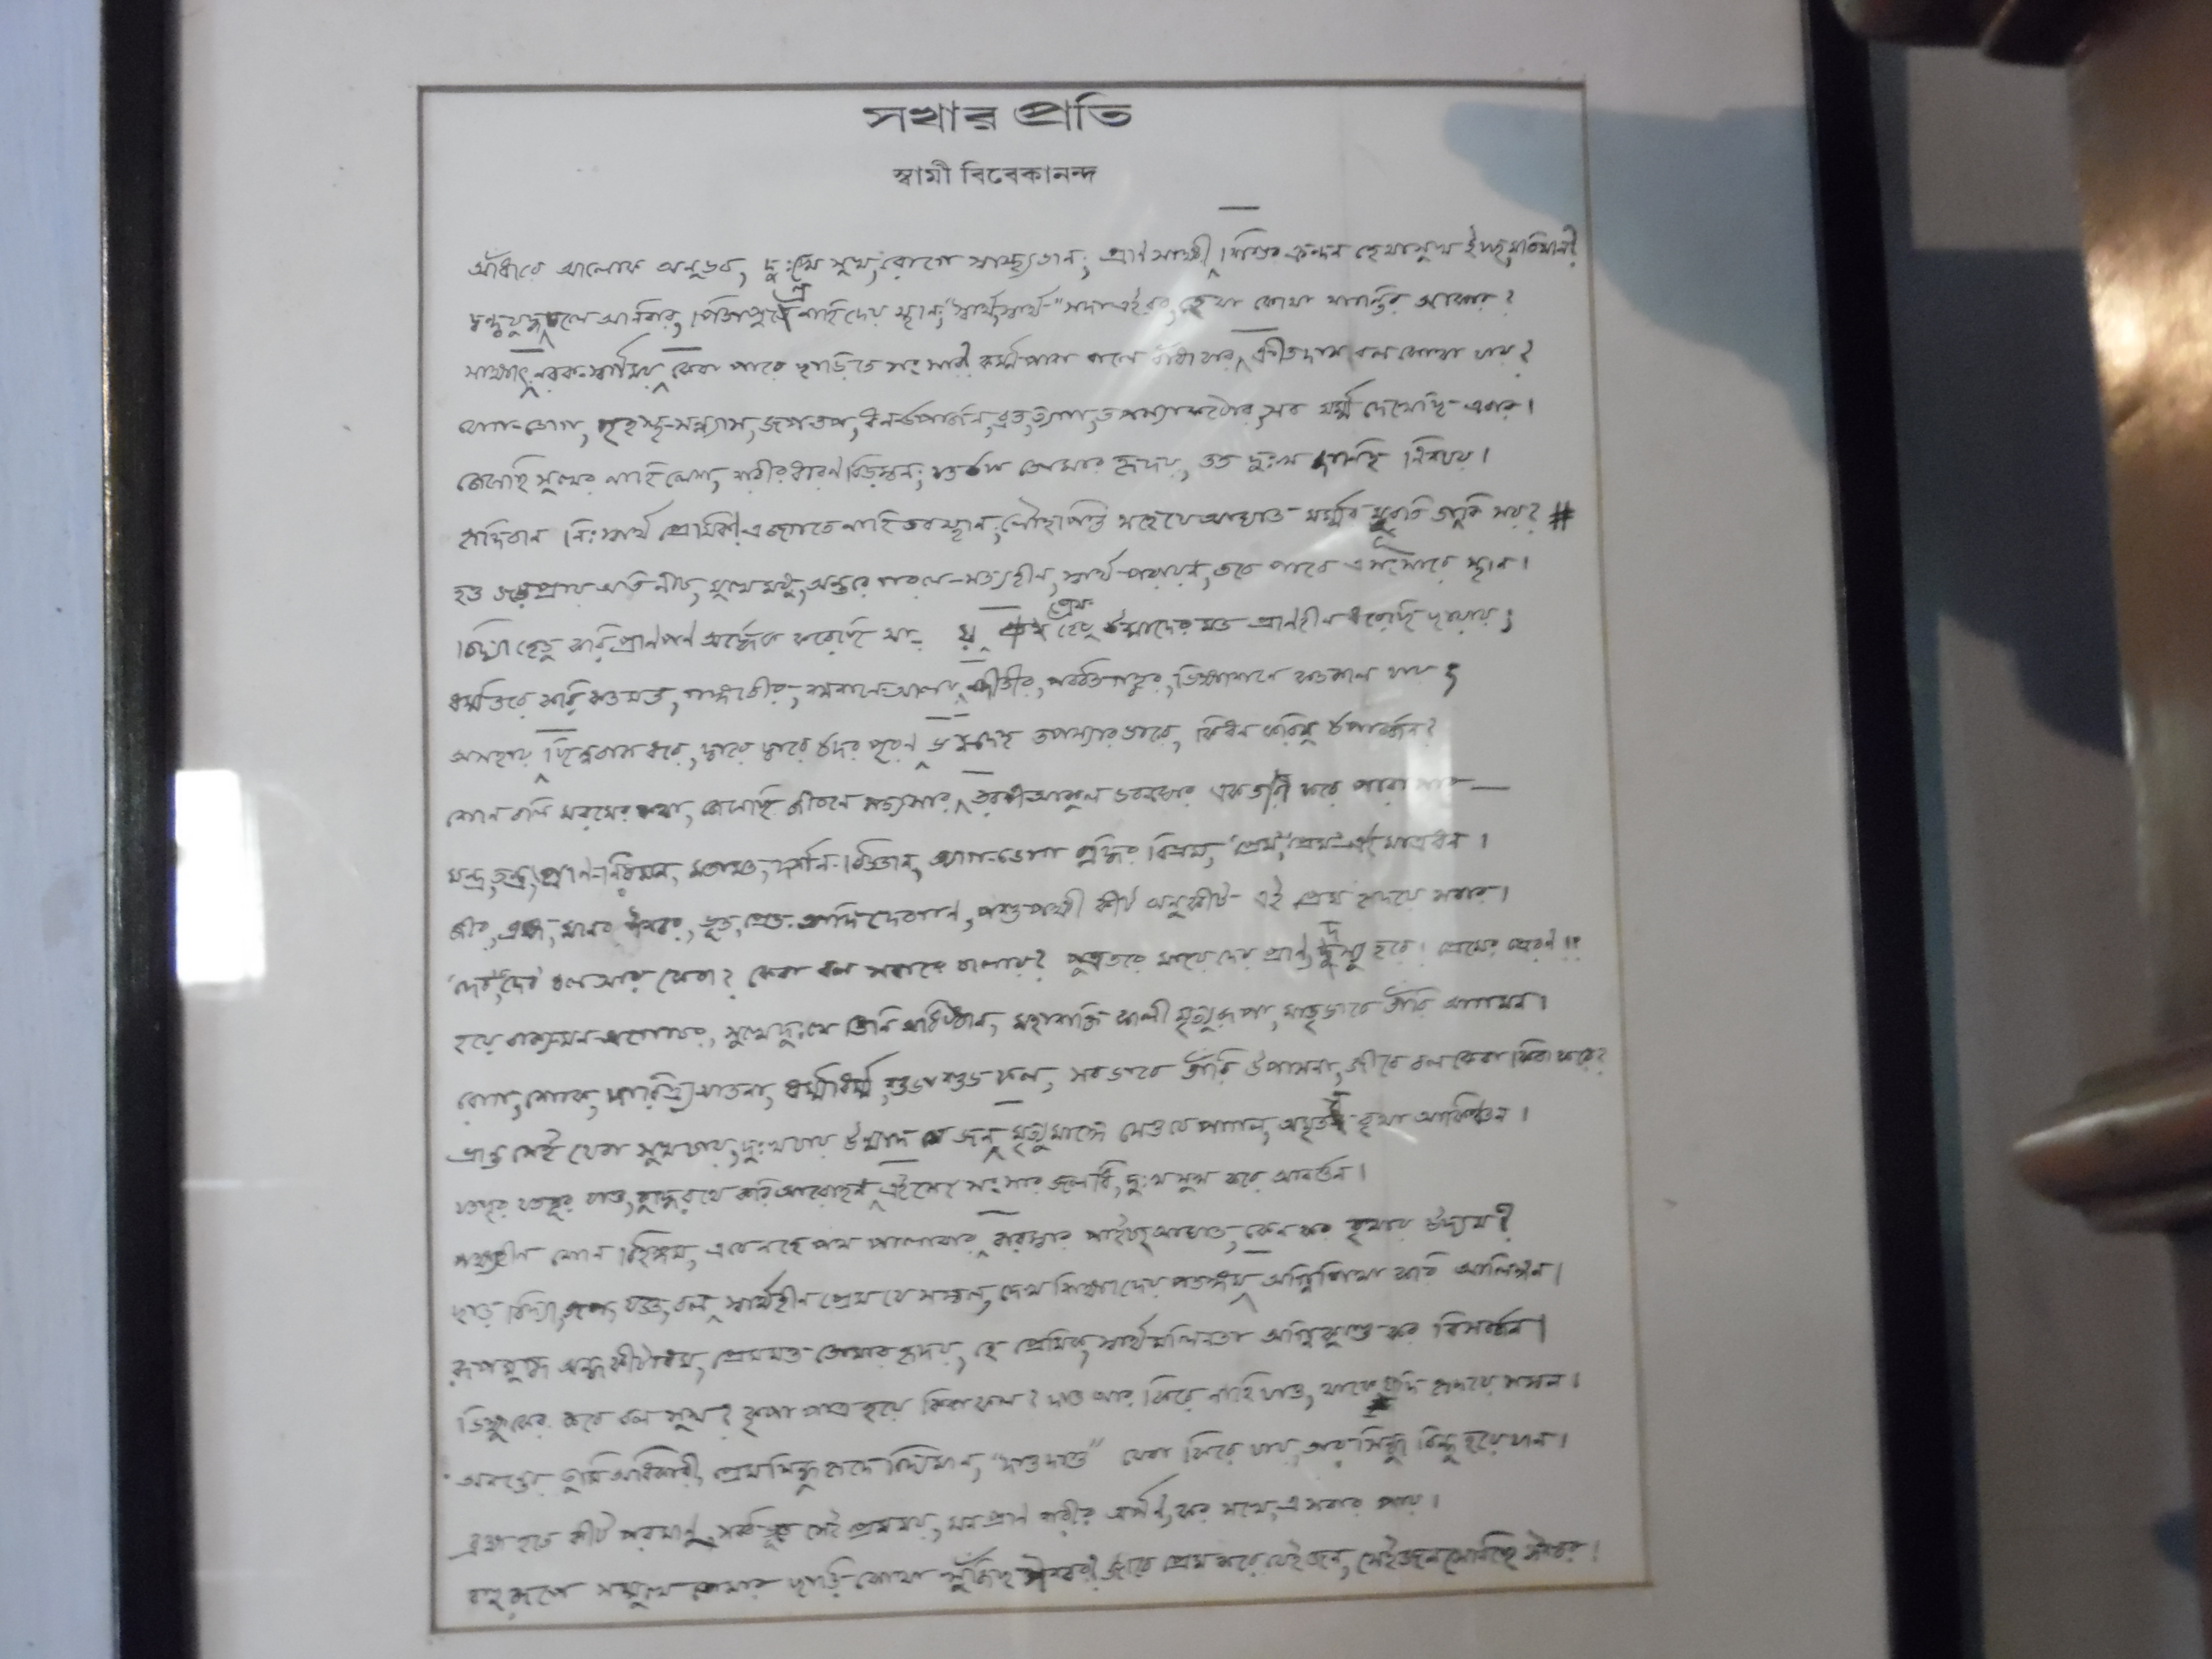 সখার প্রতি
স্বামী বিবেকানন্দ
আঁধারে আলোক অনুভব, দুঃখে সুখ, রোগে স্বাস্থ্যভান; প্রাণ সাক্ষী শিশুর ক্রন্দন হেথা সুখ ইচ্ছ মতিমান?
দ্বন্দ্বযুদ্ধ চলে অনিবার, পিতা পুত্রে নাহি দেয় স্থান; "স্বার্থ, স্বার্থ" সদা এই রব, হেথা কোথা শান্তির আকার?
সাক্ষাৎ নরক স্বর্গময় কেবা পারে ছাড়িতে সংসার? কর্ম্মপাশ গলে বাঁধা যার ক্রীতদাস বল কোথা যায়?
যোগ-ভোগ, গৃহস্থ-সন্ন্যাস, জপতপ, ধন-উপার্জন, ব্রত, ত্যাগ, তপস্যা কঠোর, সব মর্ম্ম দেখেছি এবার।
জেনেছি সুখের নাহি লেশ, শরীর ধারণ বিড়ম্বন; যত উচ্চ তোমার হৃদয়, তত দুঃখ জানিহ নিশ্চয়।
হৃদিবান নিঃস্বার্থ প্রেমিক! এ জগতে নাহি তব স্থান; লৌহপিণ্ড সহে যে আঘাত মর্ম্মর মূরতি তা কি সয়? #
হও জড়প্রায় অতি নীচ, মুখে মধু, অন্তরে গরল—সত্যহীন, স্বার্থ-পরায়ণ, তবে পাবে এ সংসারে স্থান।
বিদ্যা হেতু করি প্রাণপণ অর্দ্ধেক করেছি ক্ষয় প্রেম হেতু উন্মাদের মত প্রাণহীন ধরেছি ছায়ায়;
ধর্ম্ম তরে করি কত মত, গঙ্গাতীর, শ্মশান আলয়, নদীতীর, পর্ব্বতগহ্বর, ভিক্ষাশনে কত কাল যায়;
অসহায় ছিন্নবাস ধরে, দ্বারে দ্বারে উদর পূরণ ভগ্নদেহ তপস্যার ভারে, কি ধন করিনু উপার্জন?
শোন বলি মরমের কথা, জেনেছি জীবনে সত্য সার, তরঙ্গ আকুল ভবঘোর এক তরী করে পারাপার—
মন্ত্র, তন্ত্র, প্রাণ-নিয়মন, মতামত, দর্শন-বিজ্ঞান, ত্যাগ-ভোগ বুদ্ধির বিভ্রম, 'প্রেম', 'প্রেম'—এই মাত্র ধন।
জীব, ব্রহ্ম, মানব ঈশ্বর, ভূত, প্রেত-আদি দেবগণ, পশু পক্ষী কীট অনুকীট—এই প্রেম হৃদয়ে সবার।
'দেব', 'দেব' বল আর কেবা? কেবা বল সবারে চালায়? পুত্র তরে মায়ে দেয় প্রাণ, দস্যু হরে! প্রেমের প্রেরণ!!
হয়ে বাক্যমন-অগোচর, সুখে দুঃখে তিনি অধিষ্ঠান, মহাশক্তি কালী মৃত্যুরূপা, মাতৃভাবে তাঁরি আগমন।
রোগ, শোক, দারিদ্র্য-যাতনা, ধর্ম্মাধর্ম্ম, শুভাশুভ ফল, সব ভাবে তাঁরি উপাসনা, জীবে বল কেবা কিবা করে?
ভ্রান্ত সেই যেবা সুখ চায়, দুঃখ চায় উন্মাদ সে জন মৃত্যু মাঙ্গে সেও যে পাগল, অমৃতত্ব বৃথা আকিঞ্চন।
যতদূর যতদূর যাও, বুদ্ধিরথে করি আরোহণ এই সেই সংসার জলধি, দুঃখ সুখ করে আবর্ত্তন।
পক্ষহীন শোন বিহঙ্গম, এ যে নহে পথ পালাবার বারম্বার পাইছ আঘাত, কেন কর বৃথায় উদ্যম?
ছাড় বিদ্যা, জপ যজ্ঞ, বল স্বার্থহীন প্রেম যে সম্বল, দেখ শিক্ষা দেয় পতঙ্গম অগ্নিশিখা করি আলিঙ্গন।
রূপমুগ্ধ অন্ধ কীটাধম, প্রেমমত্ত তোমার হৃদয়, হে প্রেমিক, স্বার্থ মলিনতা অগ্নিকুণ্ডে কর বিসর্জন।
ভিক্ষুকের কবে বল সুখ? কৃপা পাত্র হয়ে কিবা ফল? দাও আর ফিরে নাহি চাও, থাকে যদি হৃদয়ে সম্বল।
অনন্তের তুমি অধিকারী, প্রেমসিন্ধু হৃদে বিদ্যমান, "দাও দাও" যেবা ফিরে চায়, তার সিন্ধু বিন্দু হয়ে যান।
ব্রহ্ম হতে কীট পরমাণু, সর্ব্বভূতে সেই প্রেমময়, মন প্রাণ শরীর অর্পণ, কর সখে, এ সবার পায়।
বহুরূপে সম্মুখে তোমার ছাড়ি কোথা খুঁজিছ ঈশ্বর? জীবে প্রেম করে যেই জন, সেই জন সেবিছে ঈশ্বর!